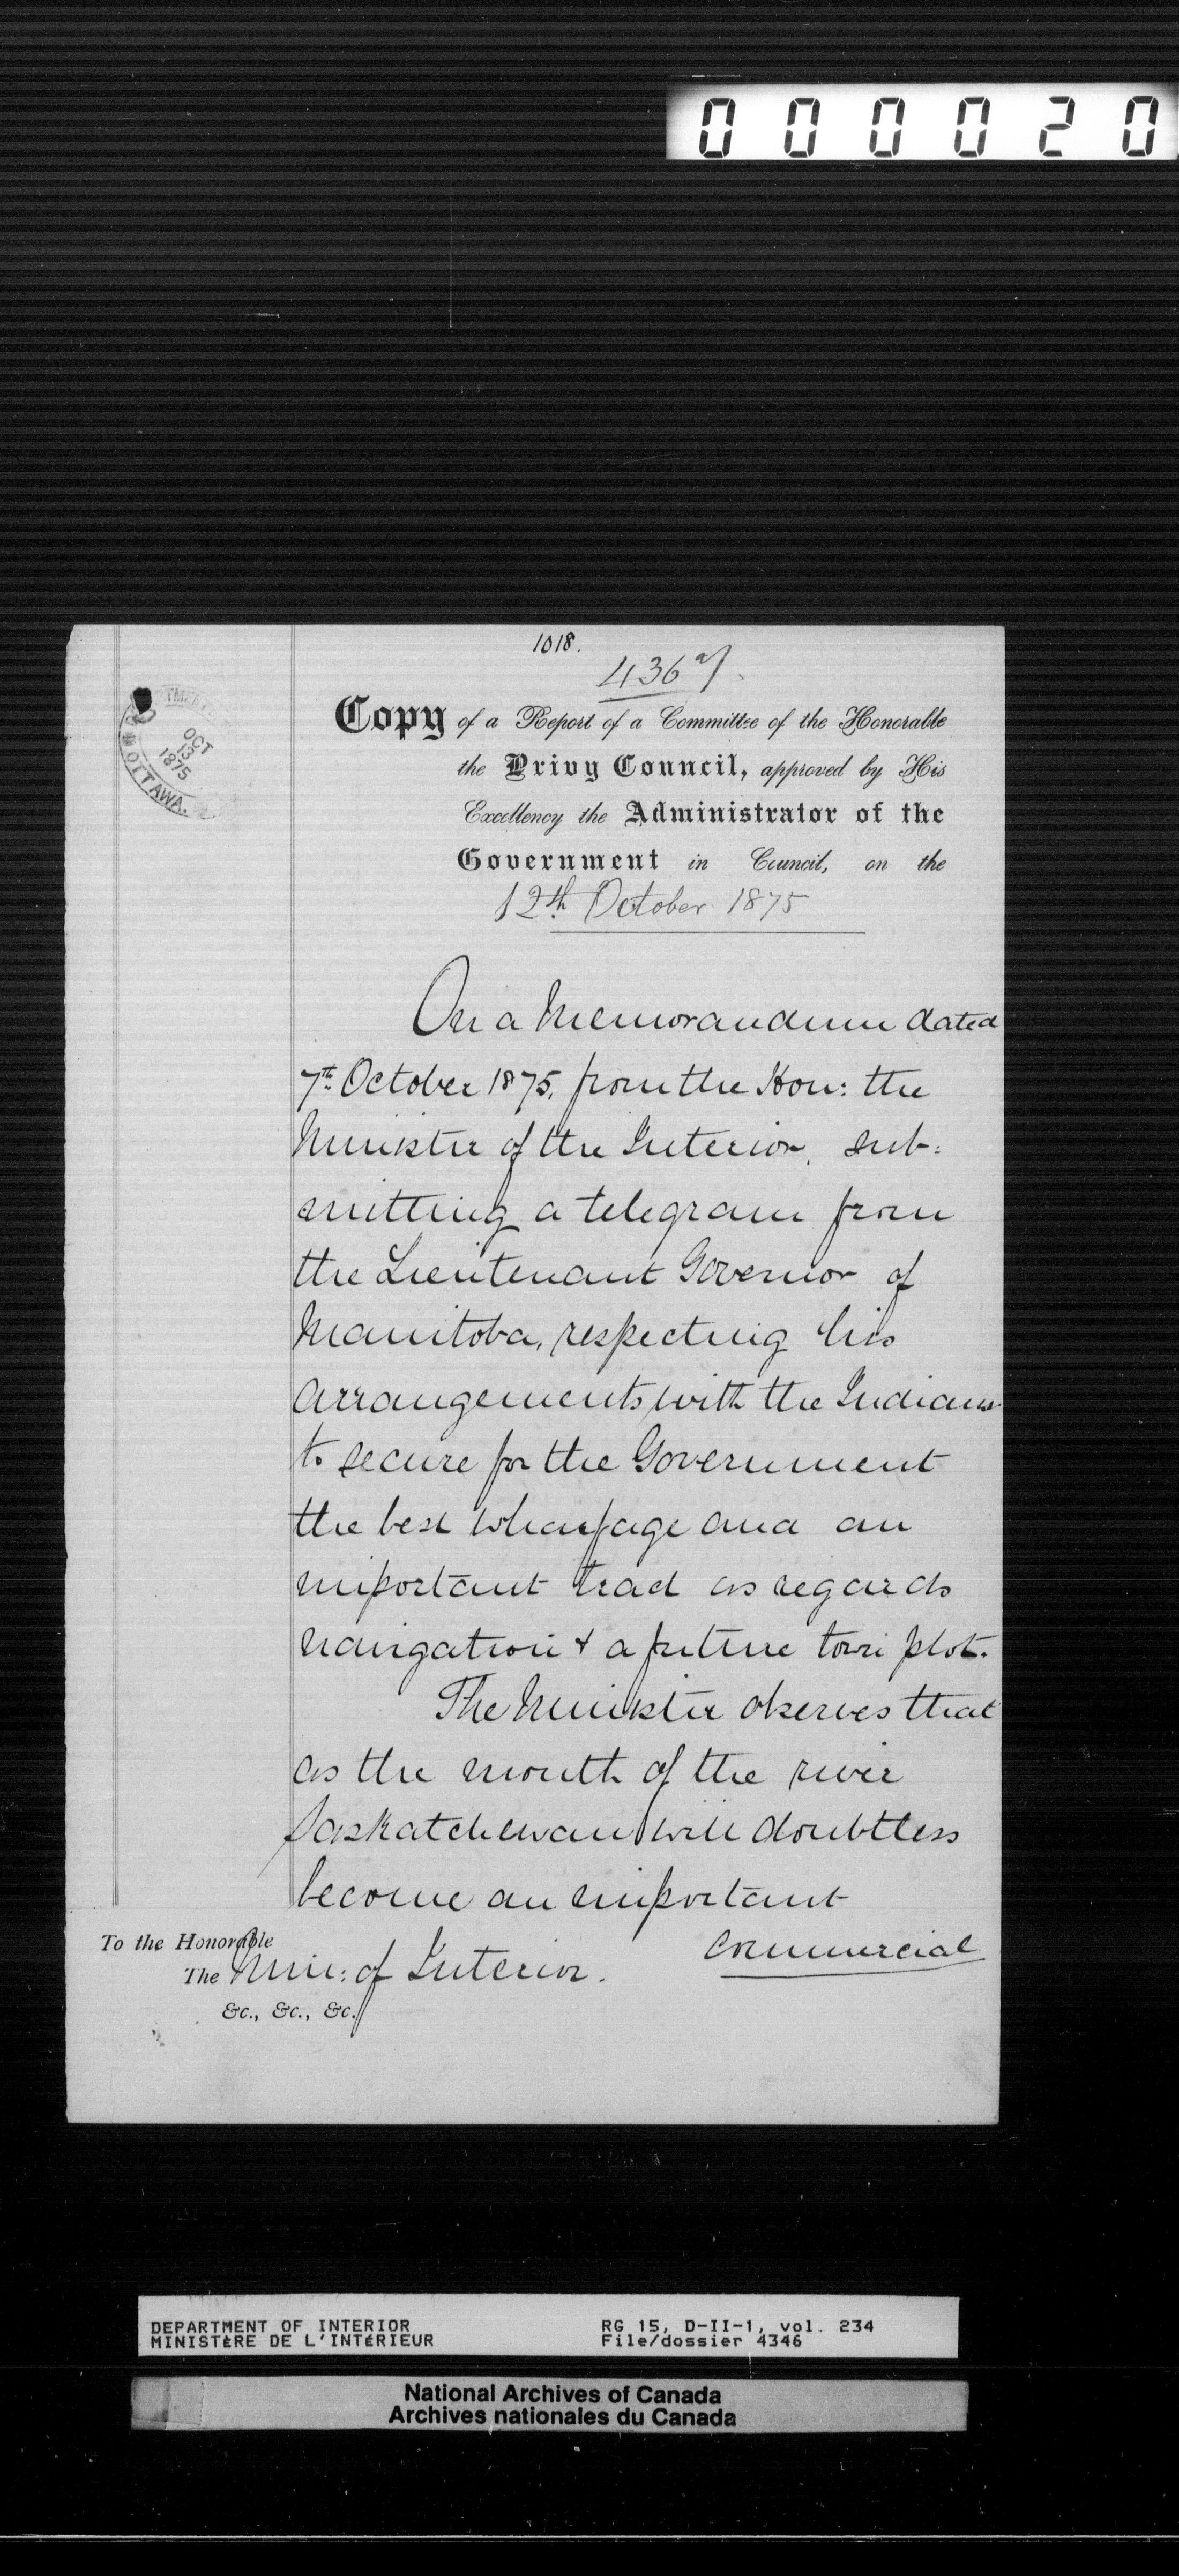 000020
1018.
436
OCT
13
1875
OTTAWA.
Copy of a Report of a Committee of the Honorable
the Privy Council, approved by His
Excellency the Administrator of the
Government in Council, on the
12th October 1875
On a Memorandum dated
7th October 1875, from the Hon: the
Minister of the Interior, sub:
mitting a telegram from
the Lieutenant Governor of
Manitoba, respecting his
arrangements with the Indians
to secure for the Government
the best wharfage and an
important tract as regards
navigation & a future town plot.
The Minister observes that
as the mouth of the river
Saskatchewan will doubtless
become an important
commercial
To the Honorable
The Min: of Interior.
&c., &c., &c.
DEPARTMENT OF INTERIOR RG 15, D-II-1, vol. 234
MINISTÈRE DE L'INTÉRIEUR File/dossier 4346
National Archives of Canada
Archives nationales du Canada